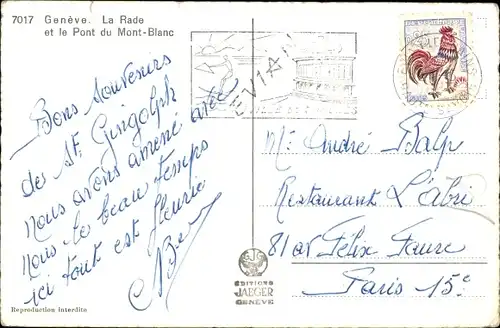 7017 Genève. La Rade
et le Pont du Mont-Blanc
EVIAN
Bons souvenirs
de St. Gingolph
nous avons amené avec
nous le beau temps
ici tout est fleurie
Mr André Balp
Restaurant L'abri
81 av Félix Faure
Paris 15e
EDITIONS
JAEGER
GENÈVE
Reproduction interdite